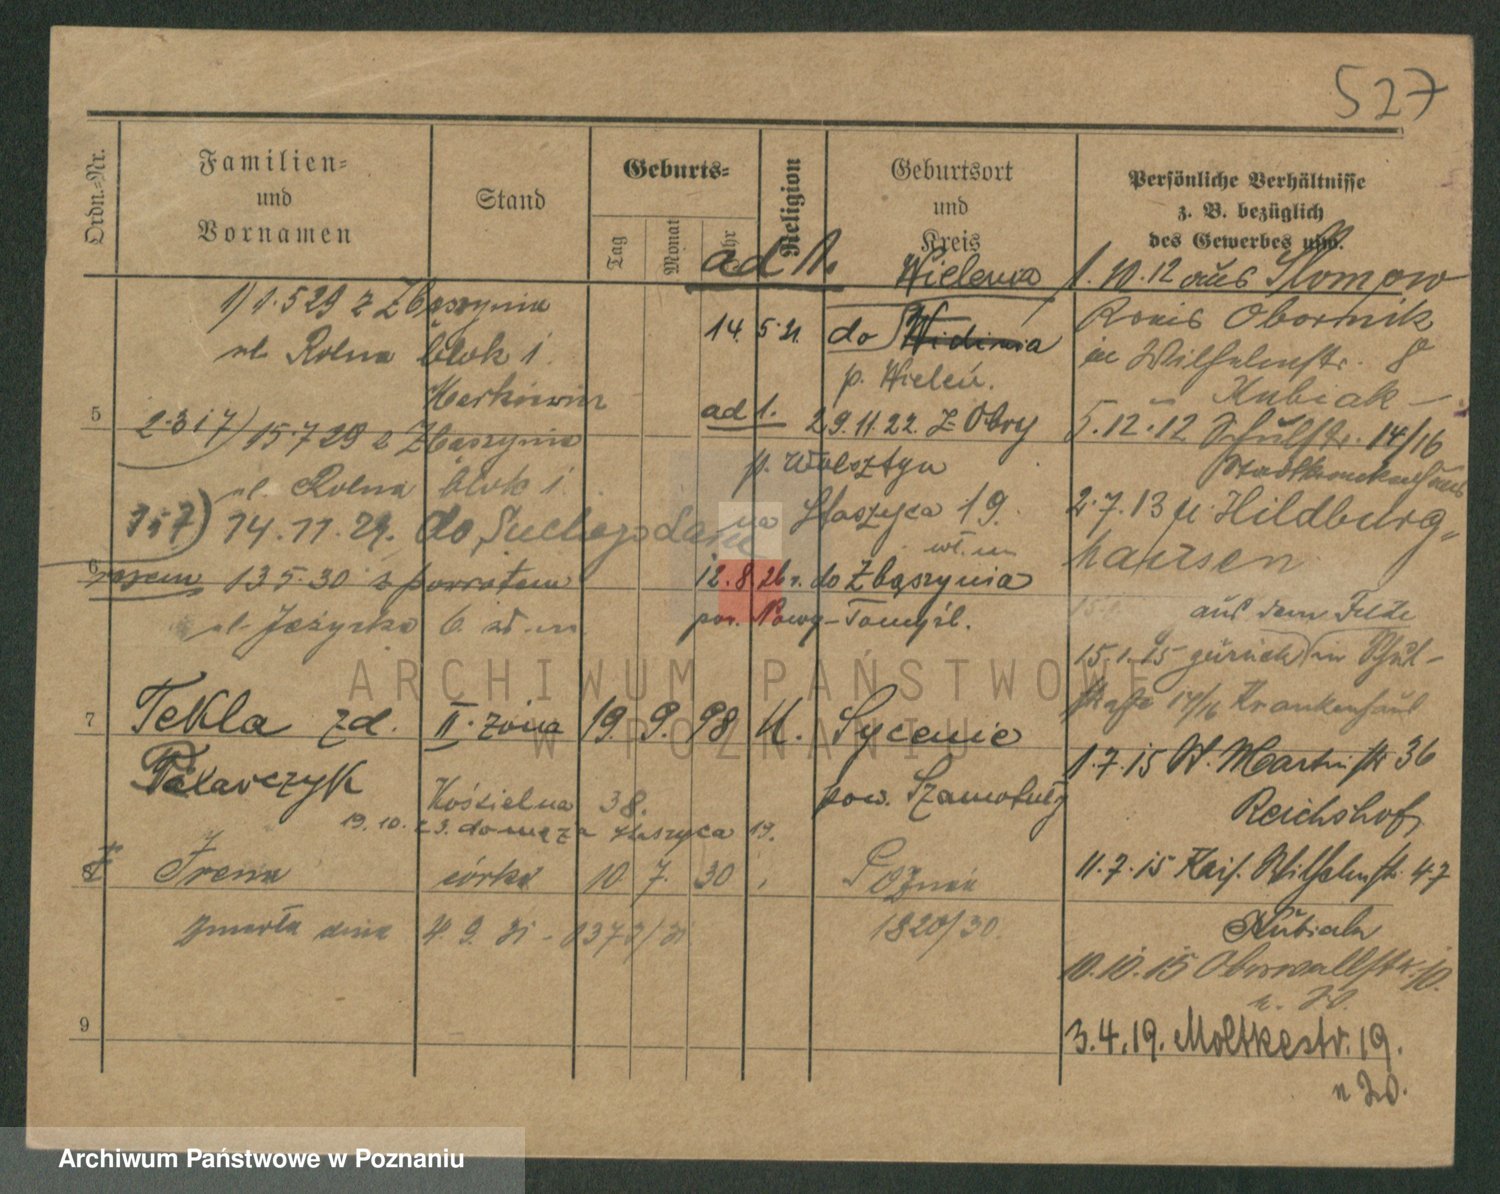 527
Ordn.-Nr.
Familien-
und
Vornamen
Stand
Geburts-
Tag
Monat
Jahr
Religion
Geburtsort
und
Kreis
Persönliche Verhältnisse
z. B. bezüglich
des Gewerbes usw.
1) 1.5 29 z Zbąszynia
ul. Rolna blok 1.
5
2.317) 15.7 29 z Zbąszynia
ul. Rolna blok 1.
14.11.29. do Suchego Lasu
6
razem 13 5.30 z powrotem
ul. Jeżycka 6.
ad 1. Wielenia
14. 5. 21. do Widinia
p. Wieleń.
ad 1. 29.11.22. z Obry
p. Wolsztyn
na Staszyca 19.
12.8.26 r. do Zbąszynia
pow. Nowy-Tomyśl.
7 Tekla zd. II. żona 19. 9. 98 K. Sycenie
Palarczyk
pow. Szamotuły
Kościelna 38.
19.10.23. do męża Staszyca 19.
8 Irena córka 10 7. 30 Poznań
zmarła dnia 4. 9. 31 - 1373/31 1820/30.
9
1.10.12 aus Slomowo
Kreis Obornik
in Wilhelmstr. 8
Kubiak
5.12.12 Schulstr. 14/16
Stadtkrankenhaus
2.7.13 n. Hildburg-
hausen
aus dem Felde
15.1.15 zurück in Schul-
straße 14/16 Krankenhaus
1.7.15 St. Martinstr 36
Reichshof
11.7.15 Kais. Wilhelmstr. 47
Kubiak
10.10.15 Oberwallstr. 10.
3.4.19. Moltkestr. 19.
ARCHIWUM PAŃSTWOWE
W POZNANIU
Archiwum Państwowe w Poznaniu